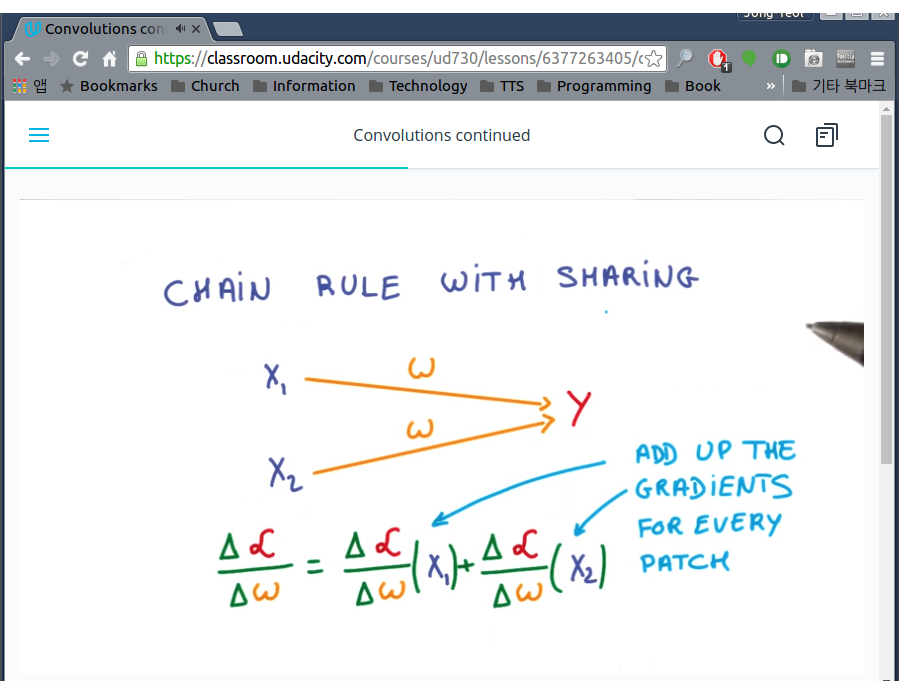 Convolutions con
https://classroom.udacity.com/courses/ud730/lessons/6377263405/c
1
앱
Bookmarks
Church
Information
Technology
TTS
Programming
Book
»
기타 북마크
Convolutions continued
CHAIN RULE WITH SHARING
X₁ ω
Y
ω
X₂
ADD UP THE
GRADIENTS
FOR EVERY
PATCH
Δℒ/Δω = Δℒ/Δω(X₁)+Δℒ/Δω(X₂)